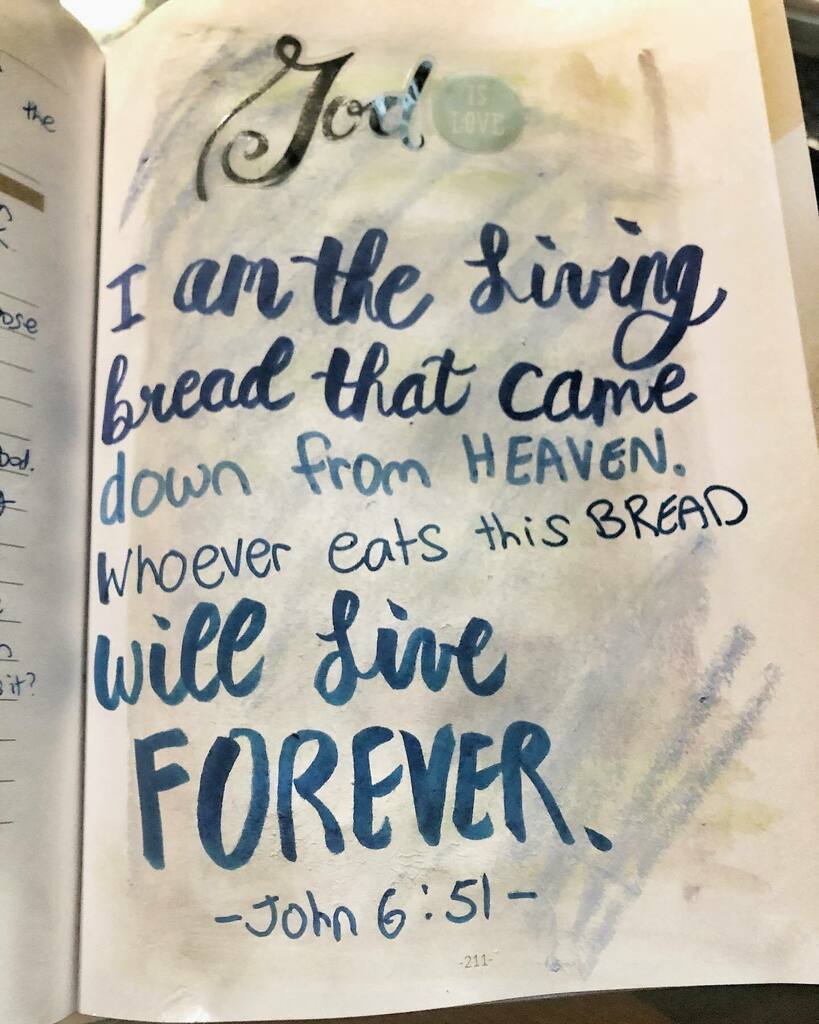 God IS
LOVE
I am the Living
bread that came
down from HEAVEN.
Whoever eats this BREAD
will Live
FOREVER.
-John 6:51-
-211-
the
it?